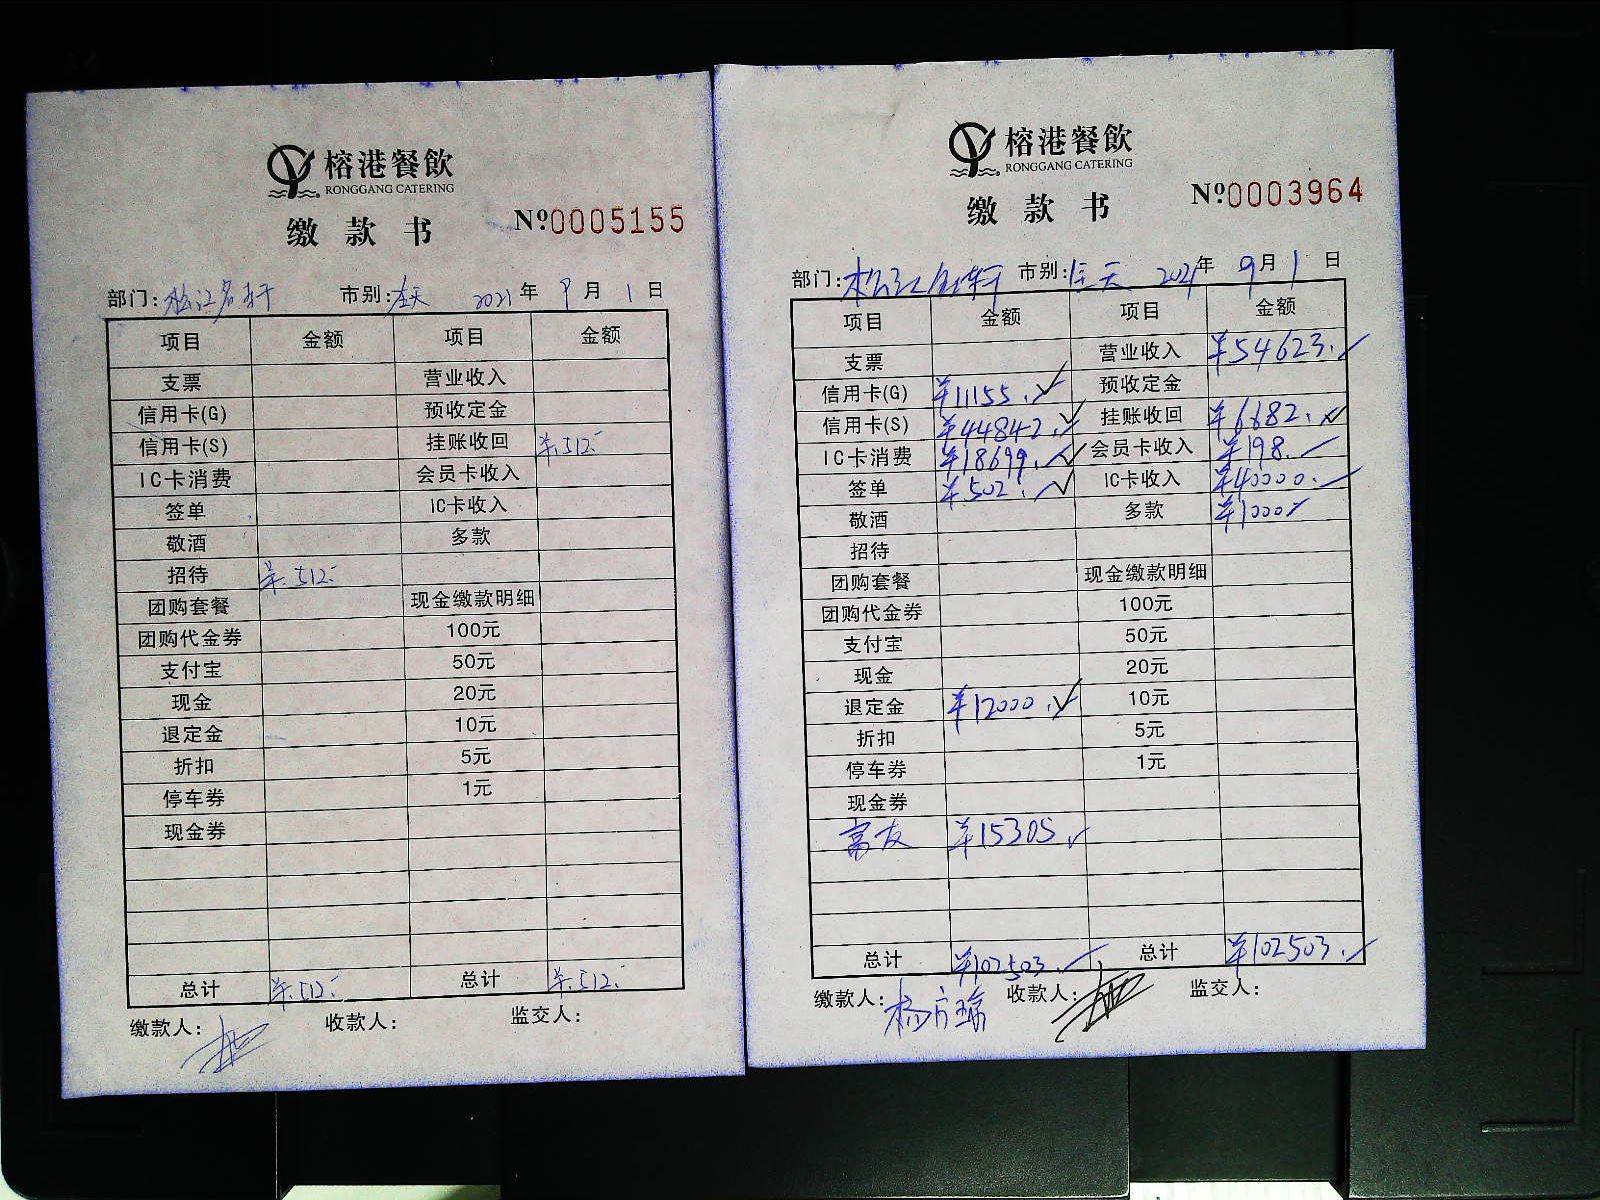 榕港餐飲
RONGGANG CATERING
缴款书
Nº0005155
部门: 松江名轩 市别: 全天 2021年 9月 1日
项目 金额 项目 金额
支票 营业收入
信用卡(G) 预收定金
信用卡(S) 挂账收回 ¥.512.-
IC卡消费 会员卡收入
签单 IC卡收入
敬酒 多款
招待 ¥.512.-
团购套餐 现金缴款明细
团购代金券 100元
支付宝 50元
现金 20元
退定金 10元
折扣 5元
停车券 1元
现金券
总计 ¥.512.- 总计 ¥.512.-
缴款人: 收款人: 监交人:
榕港餐飲
RONGGANG CATERING
缴款书
Nº0003964
部门: 松江名轩 市别: 全天 2021年 9月 1日
项目 金额 项目 金额
支票 营业收入 ¥54623.
信用卡(G) ¥11155. 预收定金
信用卡(S) ¥44842. 挂账收回 ¥6682.
IC卡消费 ¥18699. 会员卡收入 ¥198.
签单 ¥502. IC卡收入 ¥40000.
敬酒 多款 ¥1000
招待
团购套餐 现金缴款明细
团购代金券 100元
支付宝 50元
现金 20元
退定金 ¥12000. 10元
折扣 5元
停车券 1元
现金券
富友 ¥15305.
总计 ¥102503. 总计 ¥102503.
缴款人: 收款人: 监交人: